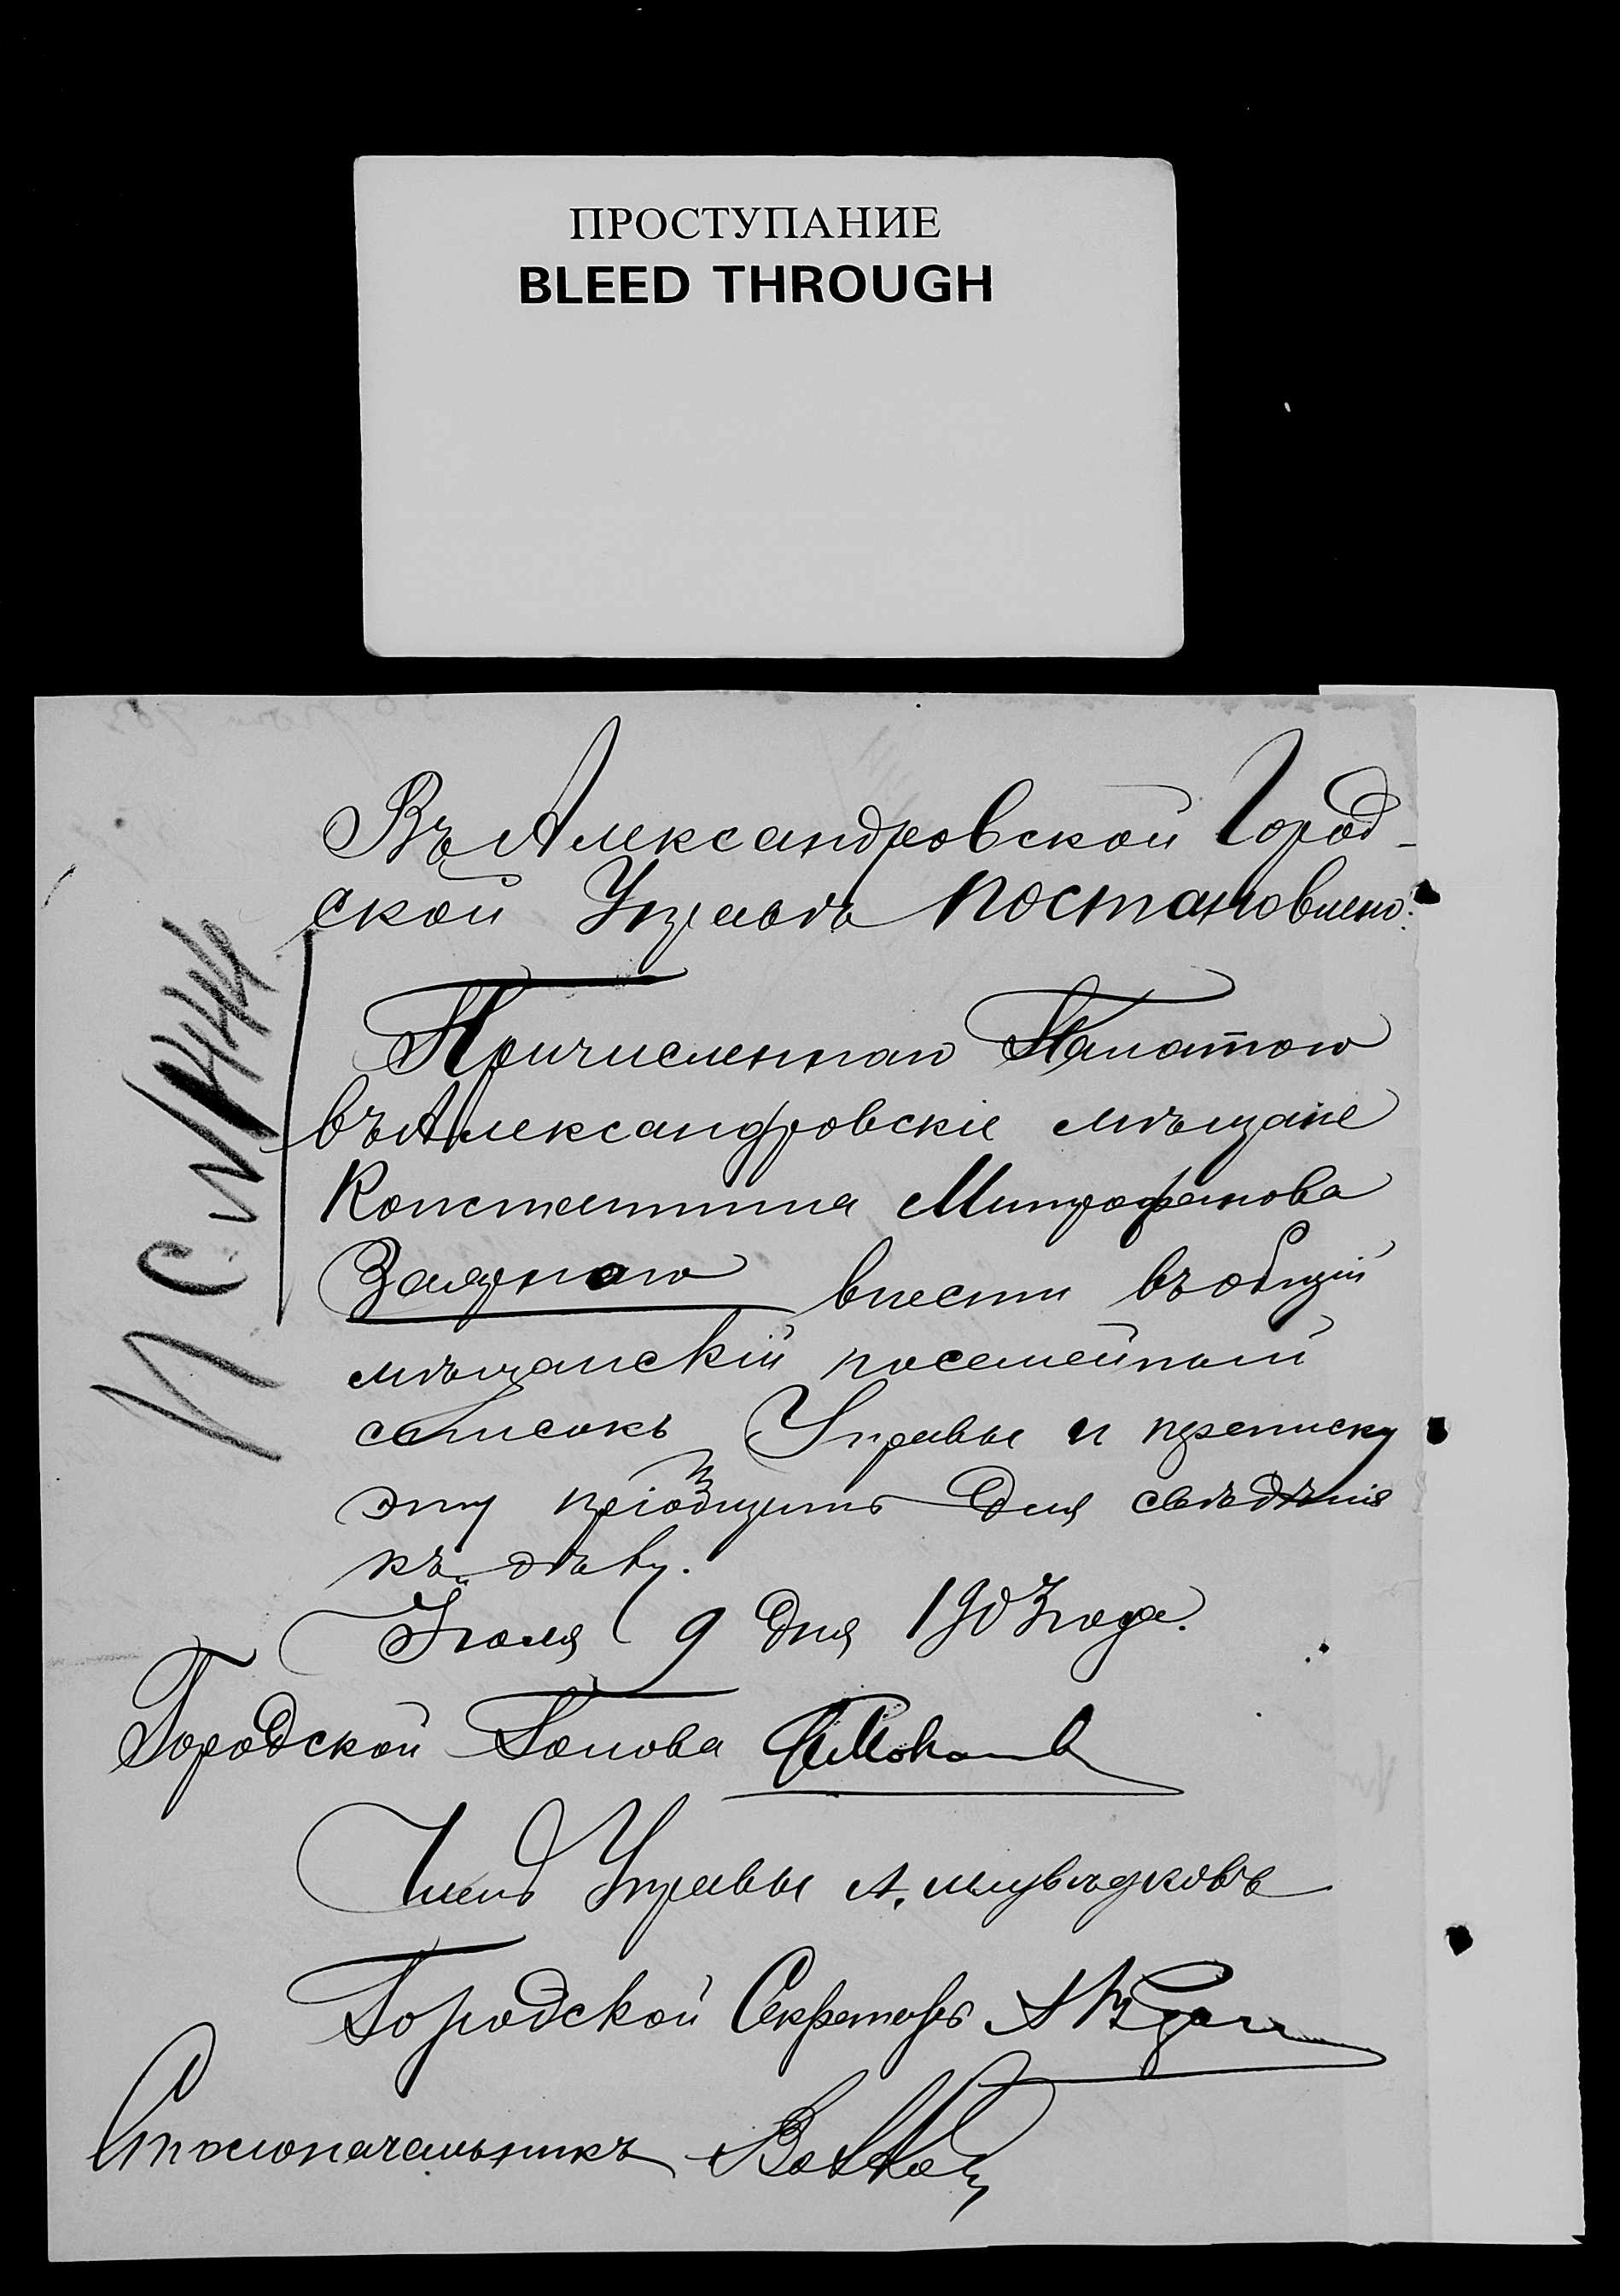 ПРОСТУПАНИЕ
BLEED THROUGH
Въ Александровской Город-
ской Управѣ постановлено:
Причисленнаго Палатою
въ Александровскіе мѣщане
Константина Митрофанова
Заярнаго внести въ общій
мѣщанскій посемейный
списокъ Управы и переписку
эту пріобщить для свѣдѣнія
къ дѣлу.
Іюля 9 дня 1903 года.
Городской Голова
Членъ Управы А.
Городской Секретарь
Столоначальникъ